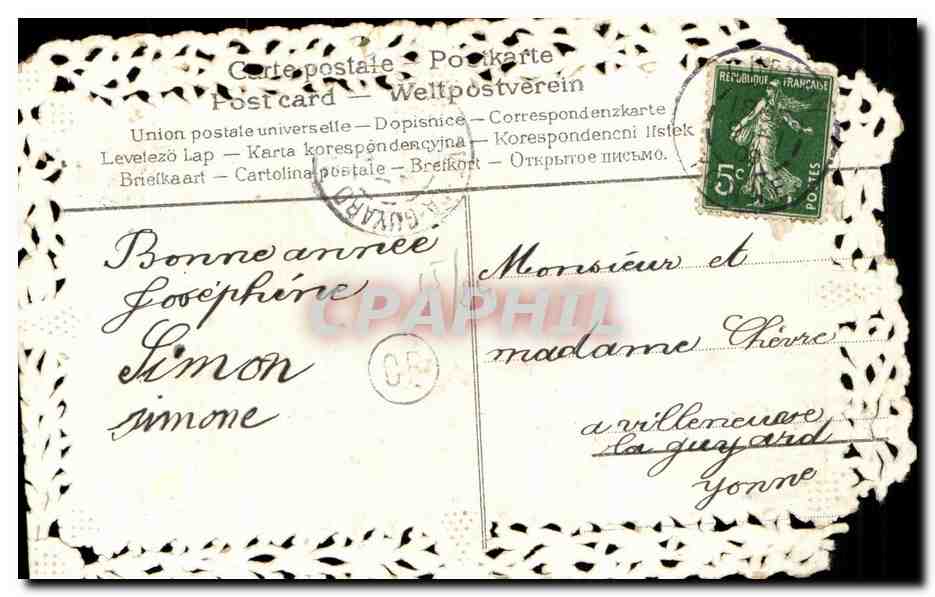 Carte postale — Postkarte
Post card — Weltpostverein
Union postale universelle — Dopisnice — Correspondenzkarte
Levelező Lap — Karta korespondencyjna — Korespondencni listek
Briefkaart — Cartolina postale — Brefkort — Открытое письмо.
REPUBLIQUE FRANÇAISE
5c
POSTES
LA-GUYARD
Bonne année
Joséphine
Simon
simone
CPAPHIL
Monsieur et
madame Chèvre
a villeneuve
la guyard
yonne